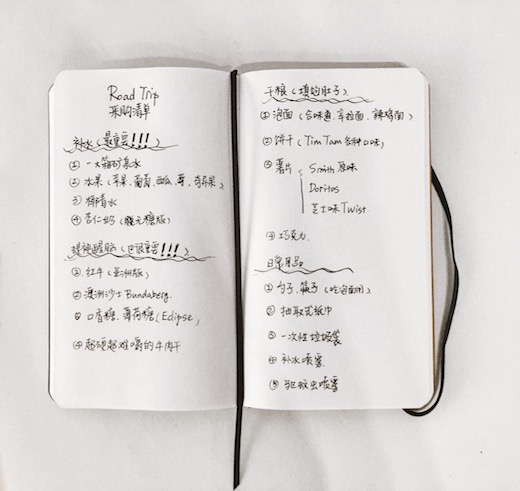 Road Trip
采购清单
补水(最重要!!!)
① 一大箱矿泉水
② 水果(苹果、葡萄、西瓜、莓、奇异果)
③ 椰青水
④ 杏仁奶(糖版)
提神醒脑(也很重要!!!)
① 红牛(亚洲版)
② 澳洲沙士 Bundaberg
③ 口香糖、薄荷糖(Eclipse)
④ 超硬超难嚼的牛肉干
干粮(填饱肚子)
① 泡面(合味道、辛拉面、辣鸡面)
② 饼干(Tim Tam 各种口味)
③ 薯片 Smith 原味
Doritos
芝士味 Twist
④ 巧克力
日常用品
① 勺子、筷子(吃泡面用)
② 抽取式纸巾
③ 一次性垃圾袋
④ 补水喷雾
⑤ 驱蚊虫喷雾